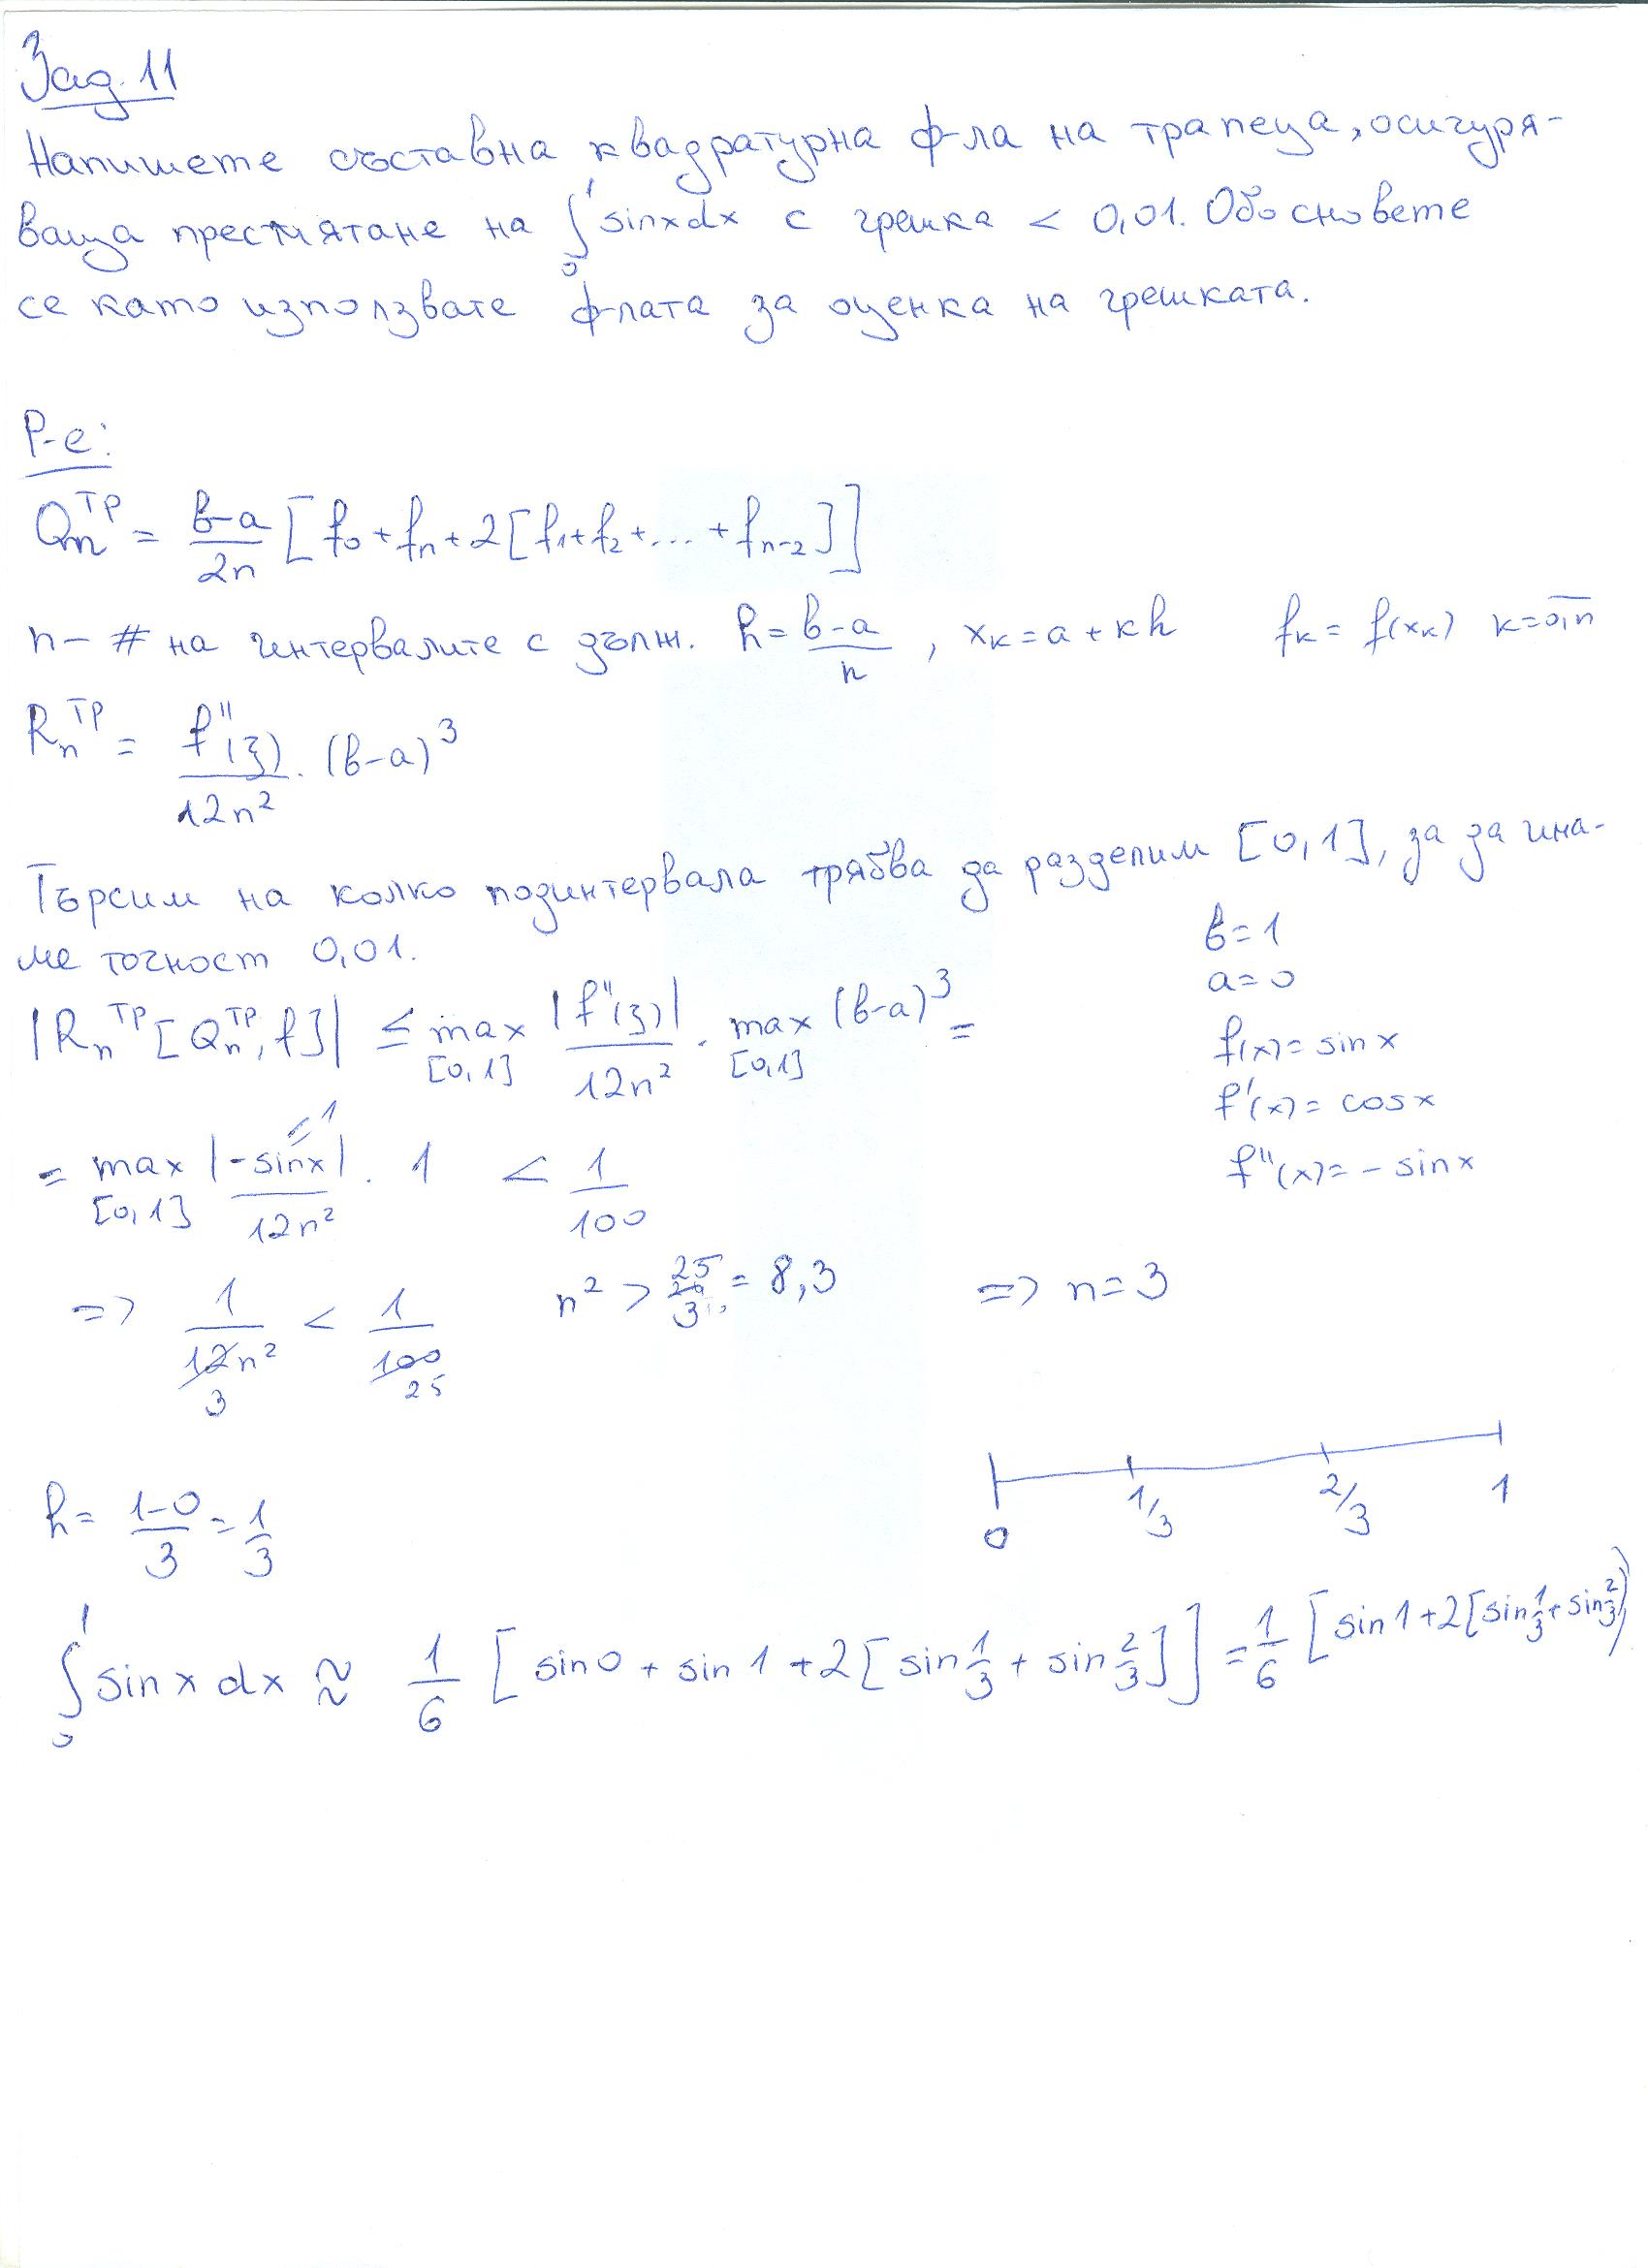 Зад. 11
Напишете съставна квадратурна ф-ла на трапеца, осигуря-
ваща пресмятане на ∫₀¹ sinxdx с грешка < 0,01. Обосновете
се като използвате ф-лата за оценка на грешката.
Р-е:
Qₙᵀᴾ = (b-a)/2n [f₀ + fₙ + 2[f₁ + f₂ + ... + fₙ₋₂]]
n - # на интервалите с дълж. h = (b-a)/n , xₖ = a + kh fₖ = f(xₖ) k = 0,n
Rₙᵀᴾ = f''(ξ)/12n² . (b-a)³
Търсим на колко подинтервала трябва да разделим [0,1], за да има-
ме точност 0,01.
b = 1
a = 0
|Rₙᵀᴾ[Qₙᵀᴾ, f]| ≤ max [0,1] |f''(ξ)|/12n² . max [0,1] (b-a)³ =
f(x) = sin x
f'(x) = cos x
= max [0,1] |-sin x|/12n² . 1 < 1/100
= 1
f''(x) = - sin x
=> 1/12n² < 1/100 n² > 25/3 = 8,3 => n = 3
3 25
h = (1-0)/3 = 1/3
0 1/3 2/3 1
∫₀¹ sin x dx ≈ 1/6 [sin 0 + sin 1 + 2[sin 1/3 + sin 2/3]] = 1/6 [sin 1 + 2[sin 1/3 + sin 2/3)